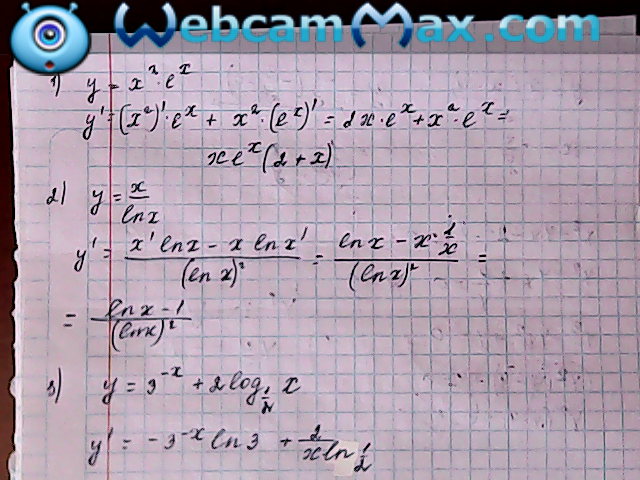 WebcamMax.com
1) y = x² · eˣ
y' = (x²)' · eˣ + x² · (eˣ)' = 2x · eˣ + x² · eˣ =
xeˣ(2 + x)
2) y = x/ln x
y' = (x' ln x − x ln x')/(ln x)² = (ln x − x · 1/x)/(ln x)² =
= (ln x − 1)/(ln x)²
3) y = 3⁻ˣ + 2 log_{1/2} x
y' = −3⁻ˣ ln 3 + 2/(x ln 1/2)